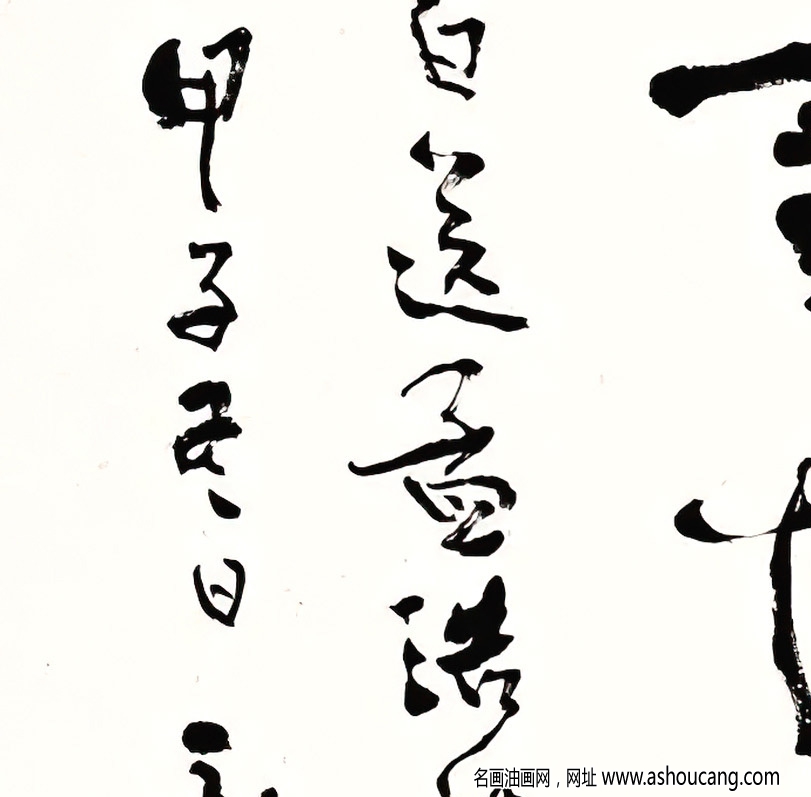 白送孟浩
甲子冬日
名画油画网，网址 www.ashoucang.com